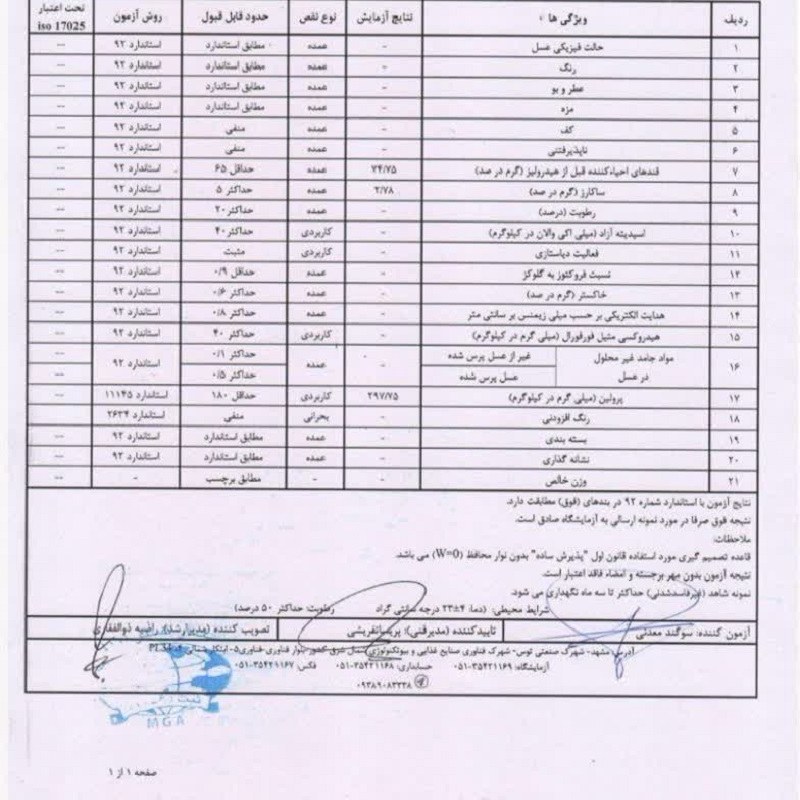 ردیف ویژگی ها نتایج آزمایش نوع نقص حدود قابل قبول روش آزمون تحت اعتبار iso 17025
۱ حالت فیزیکی عسل - عمده مطابق استاندارد استاندارد ۹۲ ---
۲ رنگ - عمده مطابق استاندارد استاندارد ۹۲ ---
۳ عطر و بو - عمده مطابق استاندارد استاندارد ۹۲ ---
۴ مزه - عمده مطابق استاندارد استاندارد ۹۲ ---
۵ کف - عمده منفی استاندارد ۹۲ ---
۶ ناپذیرفتنی - عمده منفی استاندارد ۹۲ ---
۷ قندهای احیاءکننده قبل از هیدرولیز (گرم در صد) ۷۴/۷۵ عمده حداقل ۶۵ استاندارد ۹۲ ---
۸ ساکارز (گرم در صد) ۲/۷۸ عمده حداکثر ۵ استاندارد ۹۲ ---
۹ رطوبت (درصد) - عمده حداکثر ۲۰ استاندارد ۹۲ ---
۱۰ اسیدیته آزاد (میلی اکی والان در کیلوگرم) - کاربردی حداکثر ۴۰ استاندارد ۹۲ ---
۱۱ فعالیت دیاستازی - کاربردی مثبت استاندارد ۹۲ ---
۱۲ نسبت فروکتوز به گلوکز - عمده حداقل ۰/۹ استاندارد ۹۲ ---
۱۳ خاکستر (گرم در صد) - عمده حداکثر ۰/۶ استاندارد ۹۲ ---
۱۴ هدایت الکتریکی بر حسب میلی زیمنس بر سانتی متر - عمده حداکثر ۰/۸ استاندارد ۹۲ ---
۱۵ هیدروکسی متیل فورفورال (میلی گرم در کیلوگرم) - کاربردی حداکثر ۴۰ استاندارد ۹۲ ---
۱۶ مواد جامد غیر محلول در عسل غیر از عسل پرس شده - عمده حداکثر ۰/۱ استاندارد ۹۲ ---
عسل پرس شده حداکثر ۰/۵ ---
۱۷ پرولین (میلی گرم در کیلوگرم) ۲۹۷/۷۵ کاربردی حداقل ۱۸۰ استاندارد ۱۱۱۴۵ ---
۱۸ رنگ افزودنی - بحرانی منفی استاندارد ۲۶۳۴
۱۹ بسته بندی - عمده مطابق استاندارد استاندارد ۹۲ ---
۲۰ نشانه گذاری - عمده مطابق استاندارد استاندارد ۹۲ ---
۲۱ وزن خالص - - مطابق برچسب - ---
نتایج آزمون با استاندارد شماره ۹۲ در بندهای (فوق) مطابقت دارد.
نتیجه فوق صرفا در مورد نمونه ارسالی به آزمایشگاه صادق است.
ملاحظات:
قاعده تصمیم گیری مورد استفاده قانون اول "پذیرش ساده" بدون نوار محافظ (W=0) می باشد.
نتیجه آزمون بدون مهر برجسته و امضاء فاقد اعتبار است.
نمونه شاهد (غیرفاسدشدنی) حداکثر تا سه ماه نگهداری می شود.
شرایط محیطی: (دما: ۲۳±۴ درجه سانتی گراد رطوبت: حداکثر ۵۰ درصد)
آزمون کننده: سوگند معدنی تاییدکننده (مدیرفنی): پریسا تفریشی تصویب کننده (مدیرارشد): راضیه ذوالفقاری
آدرس: مشهد- شهرک صنعتی توس- شهرک فناوری صنایع غذایی و بیوتکنولوژی شمال شرق کشور- بلوار فناوری- فناوری۵-
آزمایشگاه: ۳۵۴۲۱۱۶۹-۰۵۱ حسابداری: ۳۵۴۲۱۱۶۸-۰۵۱ فکس: ۳۵۴۲۱۱۶۷-۰۵۱
۰۹۳۸۹۰۸۳۳۳۸
MGA
صفحه ۱ از ۱